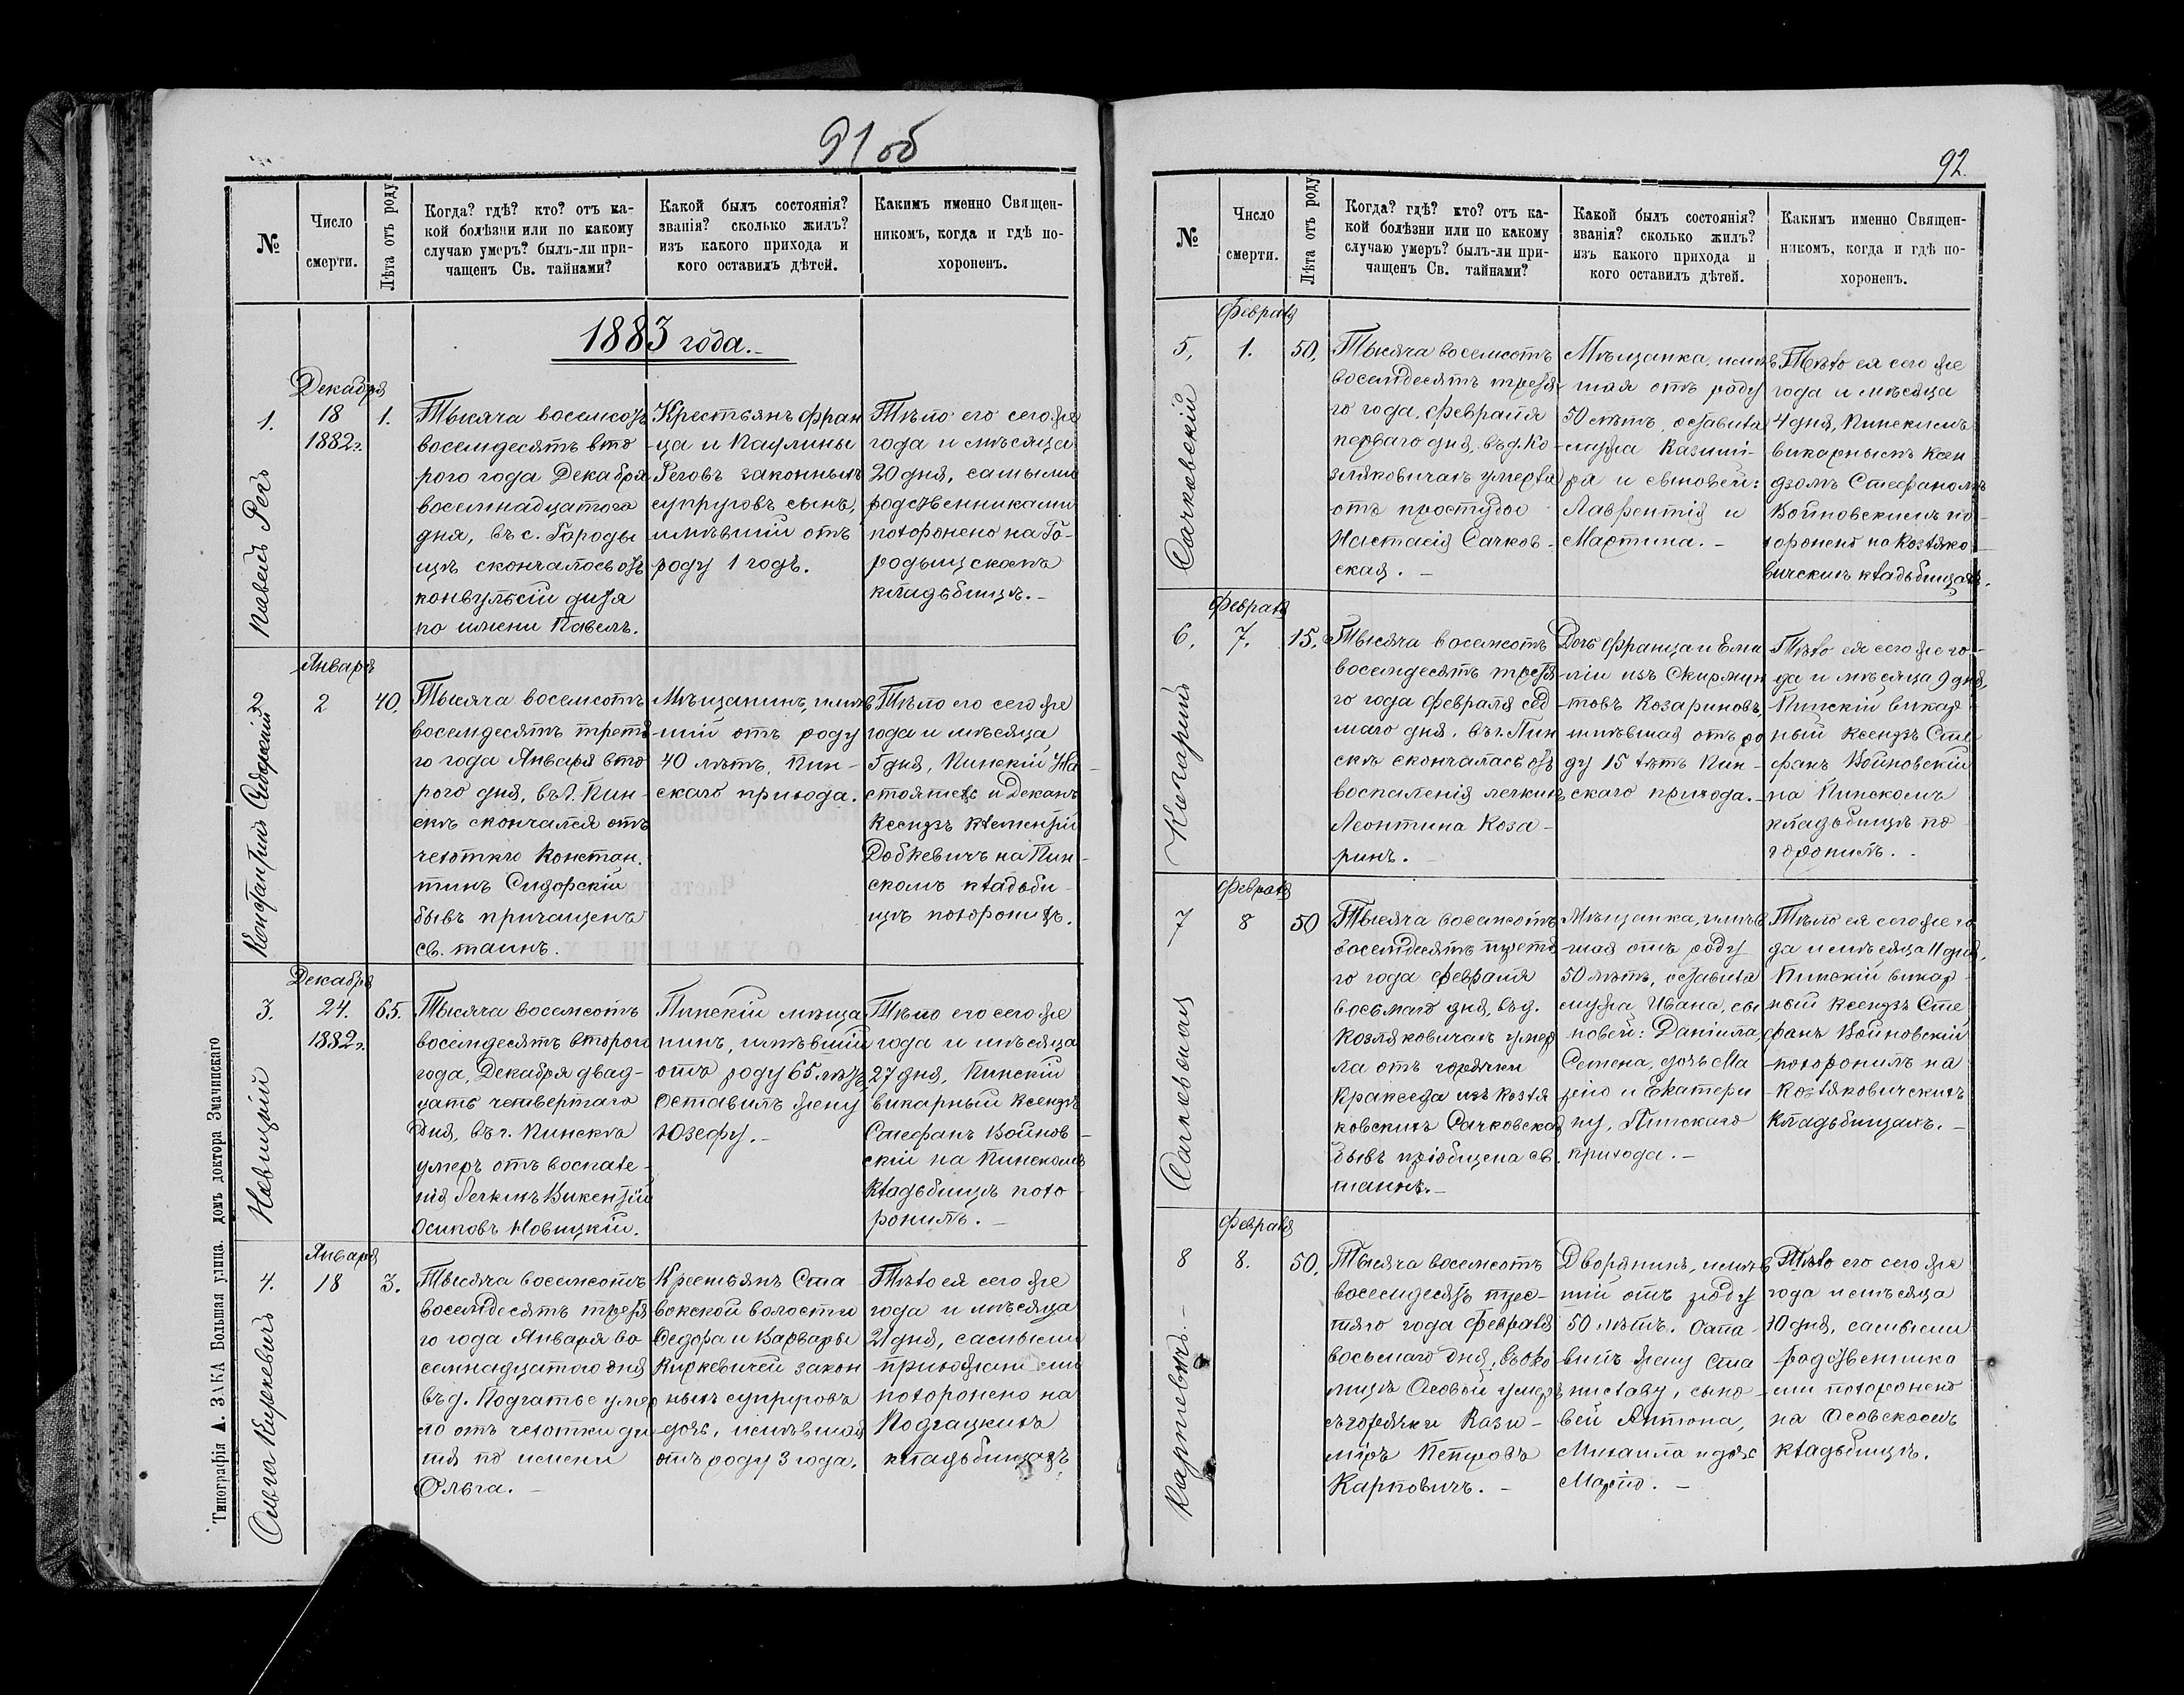 91 об
№
Число
смерти.
Лѣта отъ роду
Когда? гдѣ? кто? отъ ка-
кой болѣзни или по какому
случаю умеръ? былъ-ли при-
чащенъ Св. тайнами?
Какой былъ состоянія?
званія? сколько жилъ?
изъ какого прихода и
кого оставилъ дѣтей.
Какимъ именно Священ-
никомъ, когда и гдѣ по-
хороненъ.
1883 года.
1.
Павелъ Регъ
Декабря
18
1882 г.
1.
Тысяча восемсотъ
восемдесятъ вто
рого года Декабря
восемнадцатого
дня, въ с. Городы
щѣ скончалось отъ
конвульсіи дитя
по имени Павелъ.
Крестьянъ Фран
ца и Паулины
Реговъ законныхъ
супруговъ сынъ,
имѣвшій отъ
роду 1 годъ.
Тѣло его сего же
года и мѣсяца
20 дня, самыми
родственниками
похоронено на Го-
родыщскомъ
кладьбищѣ. -
2
Константинъ Сидорский
Января
2
40.
Тысяча восемсотъ
восемдесятъ треть
го года Января вто
рого дня, въ г. Пин-
скѣ скончался отъ
чехотки Констан.
тинъ Сидорскій
бывъ причащенъ
св. таинъ.
Мѣщанинъ, имѣв
шій отъ роду
40 лѣтъ, Пин-
скаго прихода.
Тѣло его сего же
года и мѣсяца
5 дня, Пинскій На-
стоятель и Деканъ
Ксендзъ Клементій
Добкевичъ на Пин-
скомъ кладьби-
щѣ похоронилъ.
3.
Навицкій
Декабря
24.
1882 г.
65.
Тысяча восемсотъ
восемдесятъ второго
года, Декабря двад-
цать четвертаго
дня, въ г. Пинскѣ
умеръ отъ воспале-
нія легкихъ Викентій
Осиповъ Новицкій.
Пинскій мѣща
нинъ, имѣвшій
отъ роду 65 лѣтъ,
Оставилъ жену
Юзефу. -
Тѣло его сего же
года и мѣсяца
27 дня, Пинскій
викарный Ксендзъ
Стефанъ Войнов-
скій на Пинскомъ
кладьбищѣ похо-
ронилъ. -
4.
Ольга Киркевичъ
Января
18
3.
Тысяча восемсотъ
восемдесятъ треть
го года Января во
семнадцатого дня
въ д. Подгатье умер
ло отъ чехотки ди
тя по имени
Ольга. -
Крестьянъ Ста
вокской волости
Федора и Варвары
Киркевичей закон
ныхъ супруговъ
дочь, имѣвшая
отъ роду 3 года.
Тѣло ея сего же
года и мѣсяца
21 дня, самыми
прихожанами
похоронено на
Подгацкихъ
кладьбищахъ
Типографія А. ЗАКА Большая улица. домъ доктора Змачинскаго
92.
№
Число
смерти.
Лѣта отъ роду
Когда? гдѣ? кто? отъ ка-
кой болѣзни или по какому
случаю умеръ? былъ-ли при-
чащенъ Св. тайнами?
Какой былъ состоянія?
званія? сколько жилъ?
изъ какого прихода и
кого оставилъ дѣтей.
Какимъ именно Священ-
никомъ, когда и гдѣ по-
хороненъ.
5,
Сачковскій
Февраля
1.
50,
Тысяча восемсотъ
восемдесятъ треть
го года, Февраля
перваго дня, въ д. Ко-
зляковичахъ умерла
отъ простуды
Настасія Сачков-
ская. -
Мѣщанка, имѣв
шая отъ роду
50 лѣтъ, оставила
мужа Казими-
ра и сыновей:
Лаврентія и
Мартина. -
Тѣло ея сего же
года и мѣсяца
4 дня, Пинскимъ
викарнымъ Ксен
дзомъ Стефаномъ
Войновскимъ по-
хоронено на Козляко-
вичскихъ кладьбищахъ.
6.
Козаринъ
Февраля
7.
15.
Тысяча восемсотъ
восемдесятъ треть
го года Февраля сед
маго дня, въ г. Пин
скѣ скончалась отъ
воспаленія легкихъ
Леонтина Коза-
ринъ.
Дочь Франца и Еми
ліи изъ Скирмун
товъ Козариновъ,
имѣвшая отъ ро
ду 15 лѣтъ Пин-
скаго прихода. -
Тѣло ея сего же го-
да и мѣсяца 9 дня,
Пинскій викар
ный Ксендзъ Сте
фанъ Войновскій
на Пинскомъ
кладьбищѣ по
хоронилъ. -
7
Сачковская
Февраля
8
50
Тысяча восемсотъ
восемдесятъ треть
го года Февраля
восьмаго дня, въ д.
Козляковичахъ умер
ла отъ горячки
Кракседа изъ Козля
ковскихъ Сачковская
бывъ пріобщена св.
таинъ. -
Мѣщанка, имѣв
шая отъ роду
50 лѣтъ, оставила
мужа Ивана, сы
новей: Даніила,
Семена, дочь Ма
рію и Екатери
ну, Пинскаго
прихода. -
Тѣло ея сего же го
да и мѣсяца 11 дня,
Пинскій викар-
ный Ксендзъ Сте
фанъ Войновскій
похоронилъ на
Козляковичскихъ
Кладьбищахъ. -
8
Карповичъ. -
Февраля
8.
50.
Тысяча восемсотъ
восемдесятъ тре-
тяго года Февраля
восьмаго дня, въ око
лицѣ Осовой умеръ
съ горячки Кази-
міръ Петровъ
Карповичъ. -
Дворянинъ, имѣв
шій отъ роду
50 лѣтъ. Оста-
вилъ жену Ста
ниславу, сыно-
вей Антона,
Михаила и дочь
Марію. -
Тѣло его сего же
года и мѣсяца
10 дня, самыми
родственника
ми похоронено
на Осовскомъ
кладьбищѣ.